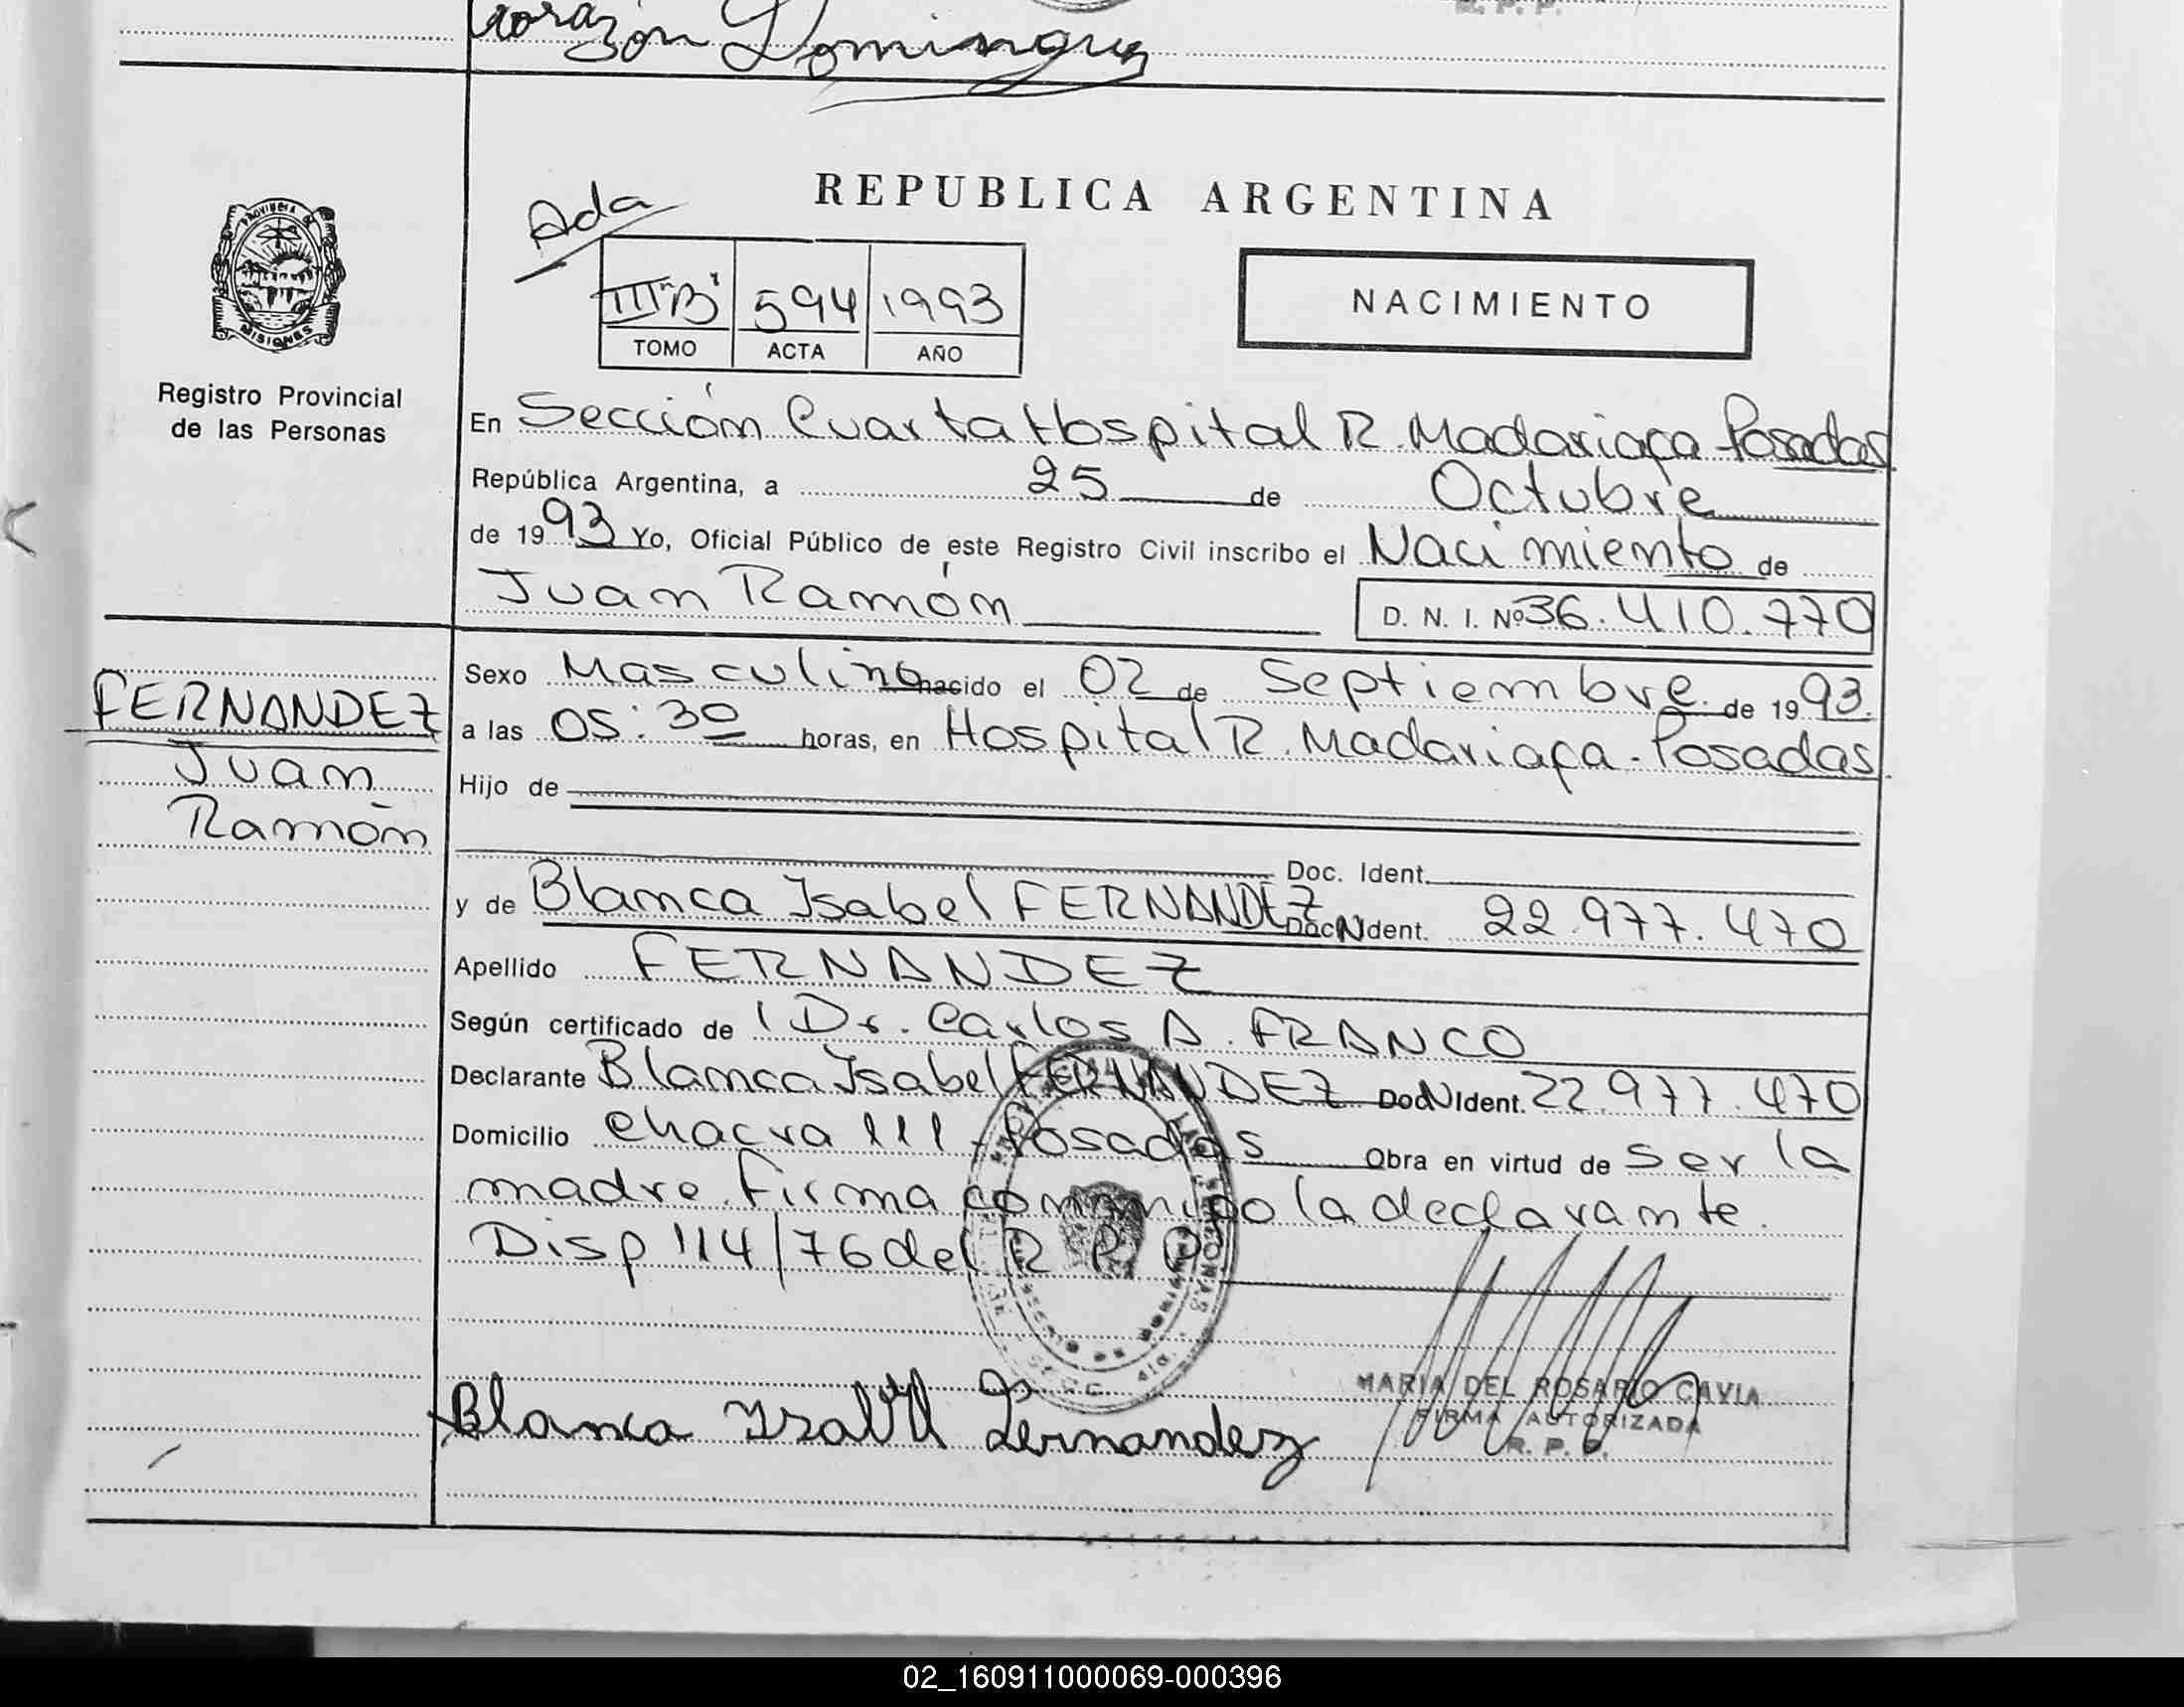 Corazón Dominguez
R. P. P.
REPUBLICA ARGENTINA
Ada
III "B" 594 1993
TOMO ACTA AÑO
NACIMIENTO
PROVINCIA DE
MISIONES
Registro Provincial
de las Personas
En Sección Cuarta Hospital R. Madariaga Posadas
República Argentina, a 25 de Octubre
de 1993 Yo, Oficial Público de este Registro Civil inscribo el Nacimiento de
Juan Ramón D. N. I. Nº 36.410.770
FERNANDEZ
Juan
Ramón
Sexo Masculino nacido el 02 de Septiembre de 1993.
a las 05:30 horas, en Hospital R. Madariaga - Posadas.
Hijo de
Doc. Ident.
y de Blanca Isabel FERNANDEZ Doc. Ident. 22.977.470
Apellido FERNANDEZ
Según certificado de l Dr. Carlos A. FRANCO
Declarante Blanca Isabel FERNANDEZ Doc. Ident. 22.977.470
Domicilio Chacra 111 - Posadas Obra en virtud de ser la
madre. Firma conmigo la declarante.
Disp 114/76 del R. P. P.
Blanca Isabel Fernandez
MARIA DEL ROSARIO CAVIA
FIRMA AUTORIZADA
R. P. P.
02_160911000069-000396